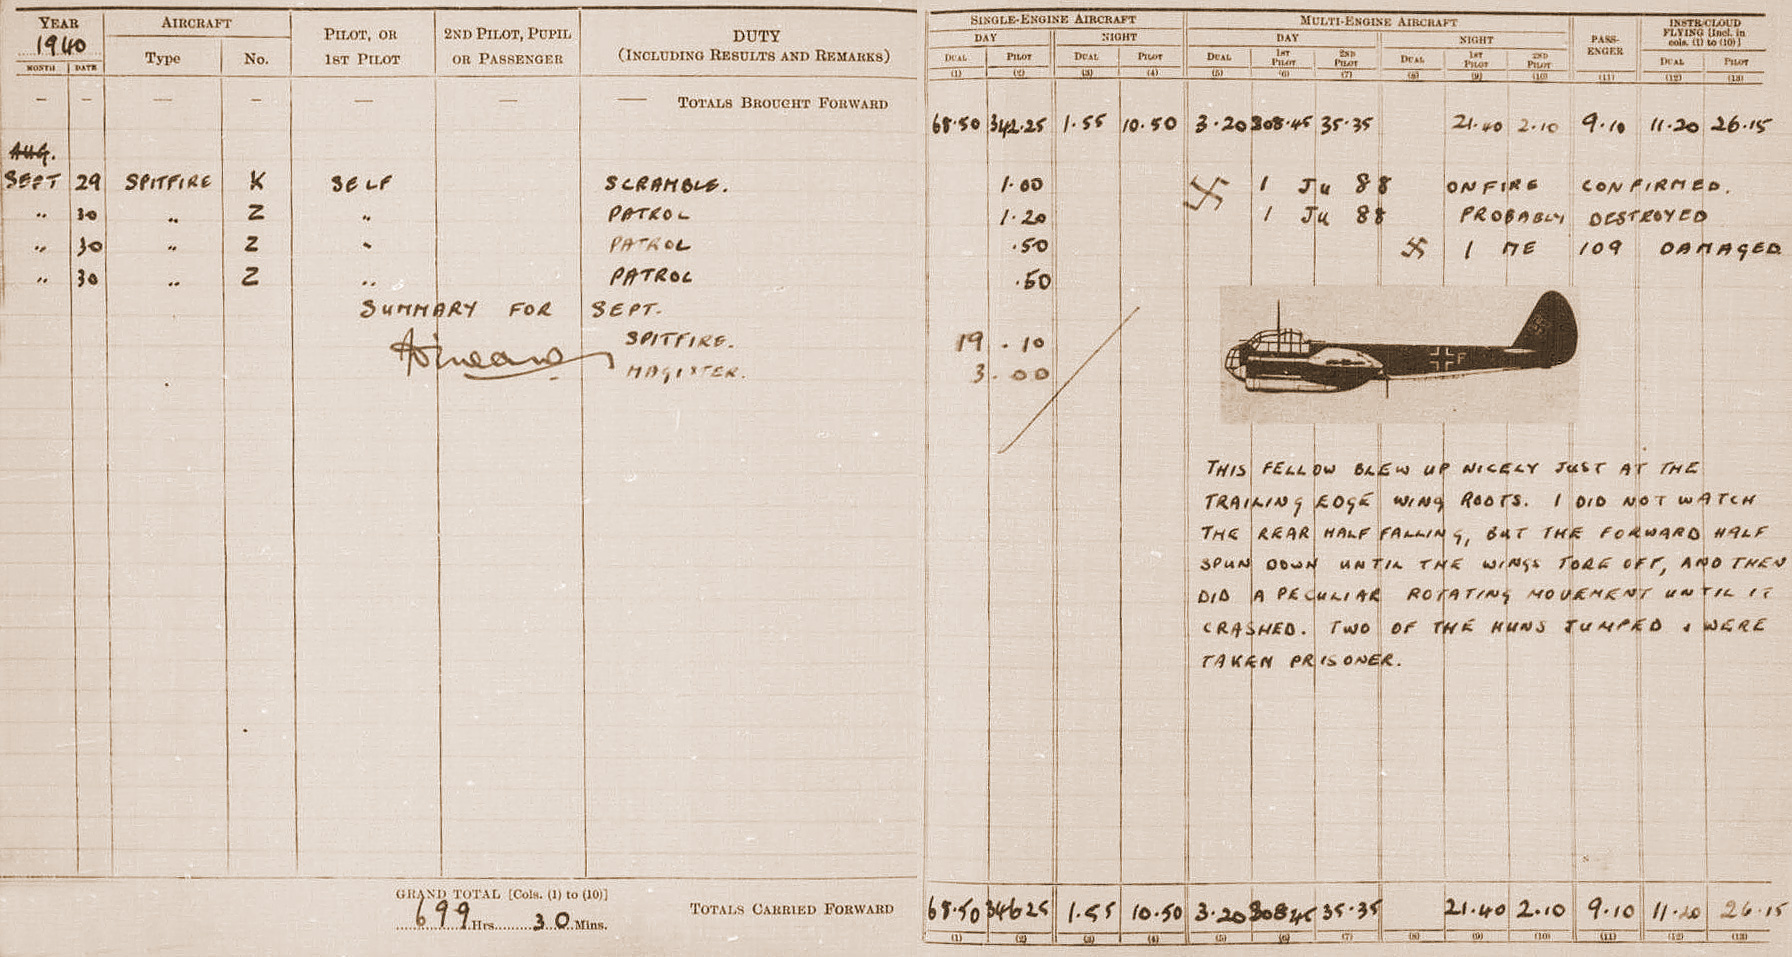 YEAR AIRCRAFT PILOT, OR 2ND PILOT, PUPIL DUTY SINGLE-ENGINE AIRCRAFT MULTI-ENGINE AIRCRAFT PASS- INSTR/CLOUD
1940 Type No. 1ST PILOT OR PASSENGER (INCLUDING RESULTS AND REMARKS) DAY NIGHT DAY NIGHT ENGER FLYING [Incl. in
cols. (1) to (10)]
MONTH DATE DUAL PILOT DUAL PILOT DUAL 1ST PILOT 2ND PILOT DUAL 1ST PILOT 2ND PILOT DUAL PILOT
(1) (2) (3) (4) (5) (6) (7) (8) (9) (10) (11) (12) (13)
— — — — — — — TOTALS BROUGHT FORWARD
68.50 342.25 1.55 10.50 3.20 308.45 35.35 21.40 2.10 9.10 11.20 26.15
AUG.
SEPT 29 SPITFIRE K SELF SCRAMBLE. 1.00 1 Ju 88 ON FIRE CONFIRMED.
" 30 " Z " PATROL 1.20 1 Ju 88 PROBABLY DESTROYED
" 30 " Z " PATROL .50 1 ME 109 DAMAGED
" 30 " Z " PATROL .50
SUMMARY FOR SEPT.
SPITFIRE. 19.10
MAGISTER. 3.00
F
THIS FELLOW BLEW UP NICELY JUST AT THE
TRAILING EDGE WING ROOTS. I DID NOT WATCH
THE REAR HALF FALLING, BUT THE FORWARD HALF
SPUN DOWN UNTIL THE WINGS TORE OFF, AND THEN
DID A PECULIAR ROTATING MOVEMENT UNTIL IT
CRASHED. TWO OF THE HUNS JUMPED & WERE
TAKEN PRISONER.
GRAND TOTAL [Cols. (1) to (10)]
699 Hrs. 30 Mins.
TOTALS CARRIED FORWARD 68.50 346.25 1.55 10.50 3.20 308.45 35.35 21.40 2.10 9.10 11.20 26.15
(1) (2) (3) (4) (5) (6) (7) (8) (9) (10) (11) (12) (13)